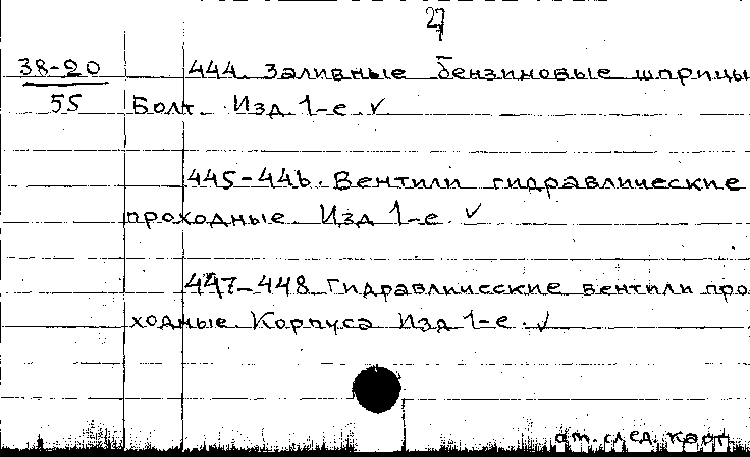 27
38-20 444. Заливные бензиновые шприцы
55 Болт. Изд. 1-е. ✓
445-446. Вентили гидравлические
проходные. Изд 1-е. ✓
447-448. Гидравлические вентили про
ходные. Корпуса Изд 1-е. ✓
см. след. карт.